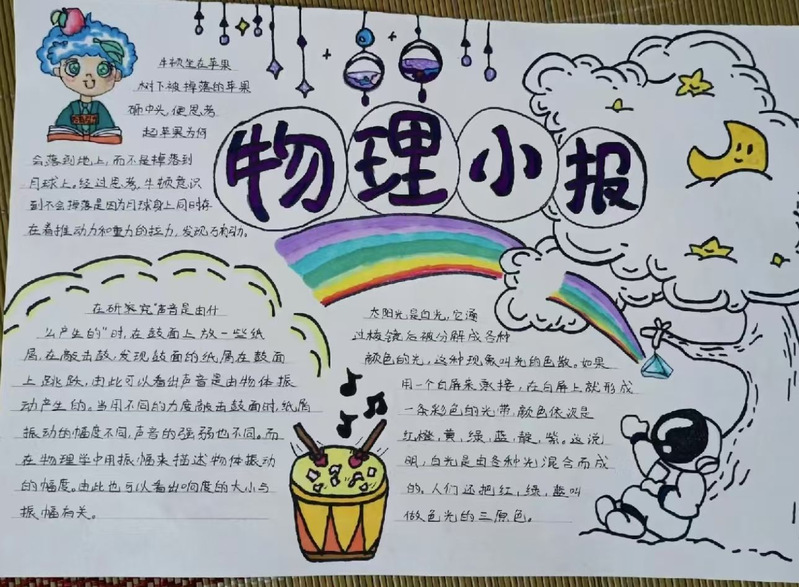 物理小报
牛顿坐在苹果
树下被掉落的苹果
砸中头,便思考
起苹果为何
会落到地上,而不是掉落到
月球上。经过思考,牛顿意识
到不会掉落是因为月球身上同时存
在着推动力和重力的拉力,发现万有引力。
在研究究"声音是由什
么产生的"时,在鼓面上放一些纸
屑,在敲击鼓,发现鼓面的纸屑在鼓面
上跳跃,由此可以看出声音是由物体振
动产生的。当用不同的力度敲击鼓面时,纸屑
振动的幅度不同,声音的强弱也不同。而
在物理学中用振幅来描述物体振动
的幅度。由此也可以看出响度的大小与
振幅有关。
太阳光是白光,它通
过棱镜后被分解成各种
颜色的光,这种现象叫光的色散。如果
用一个白屏来承接,在白屏上就形成
一条彩色的光带,颜色依次是
红,橙,黄,绿,蓝,靛,紫。这说
明,白光是由各种光混合而成
的。人们还把红,绿,蓝叫
做色光的三原色。